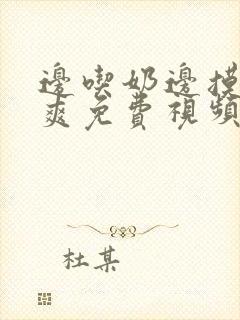 邊喫奶邊摸
爽免費視頻
杜某